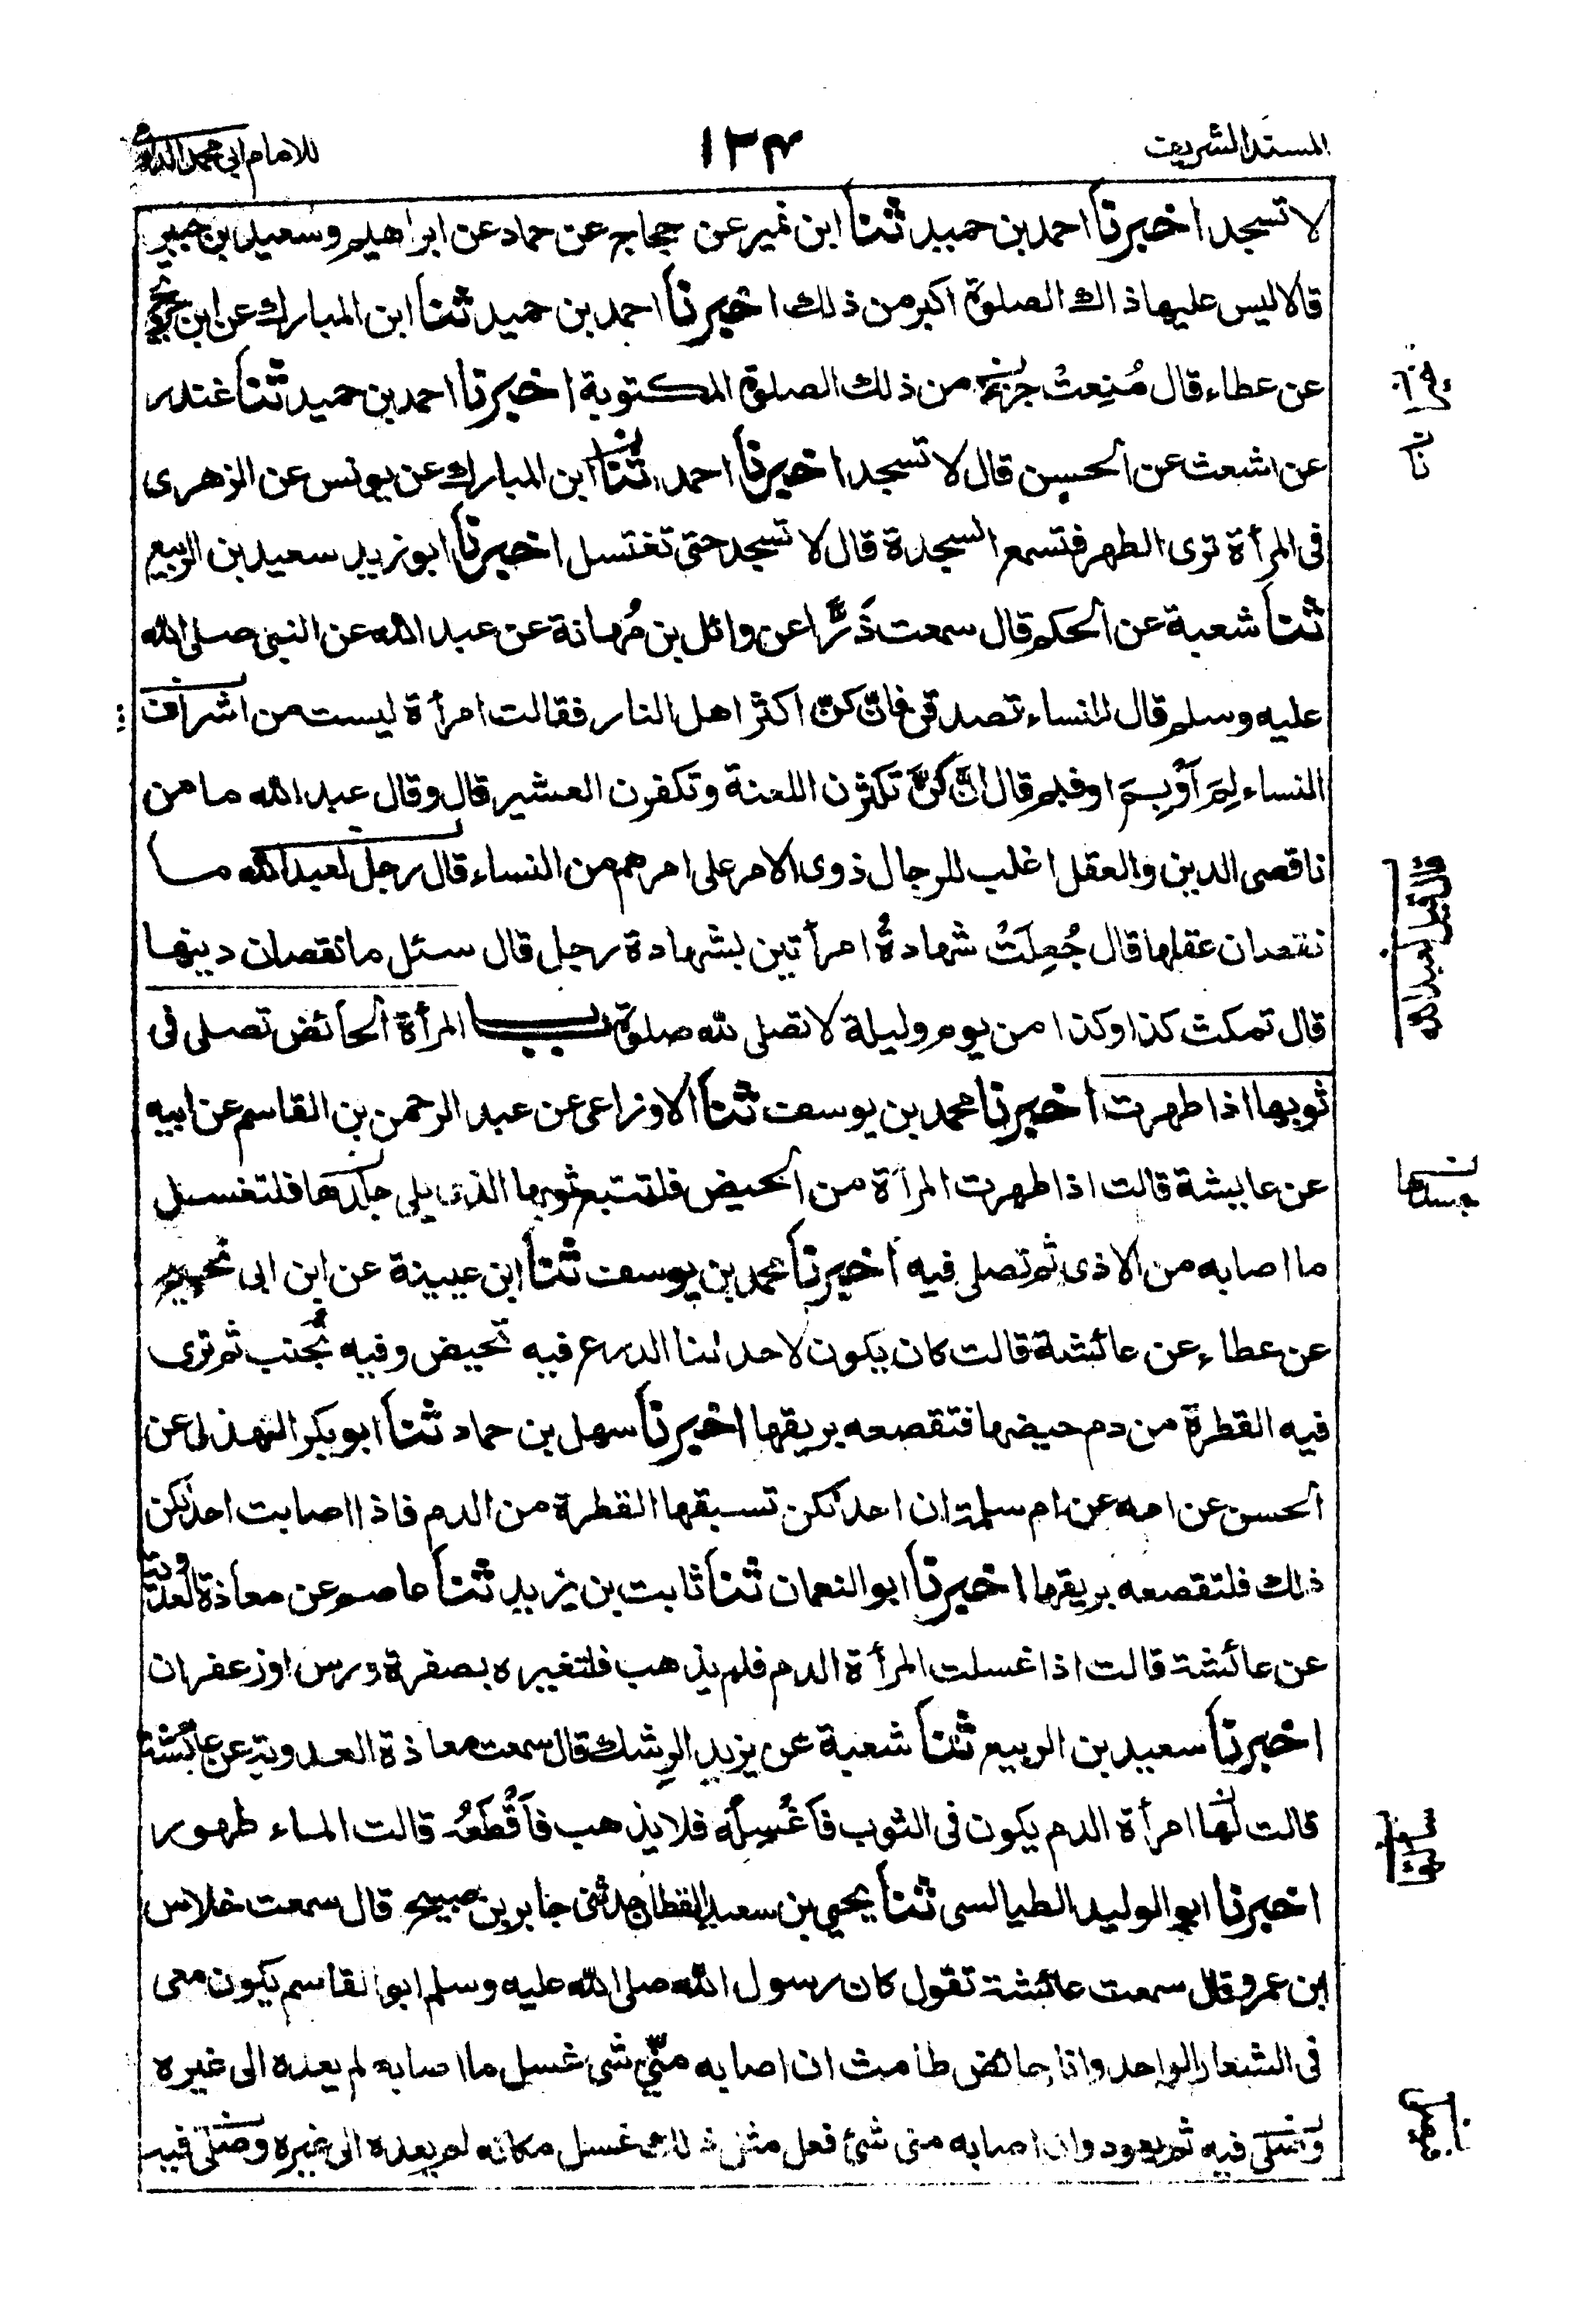 المسند الشريف
١٣٤
للامام ابى محمد الدارمى
لا تسجد اخبرنا احمد بن حميد ثنا ابن نمير عن حجاج عن حماد عن ابراهيم وسعيد بن جبير
قالا ليس عليها ذاك الصلوة اكبر من ذلك اخبرنا احمد بن حميد ثنا ابن المبارك عن ابن جريج
عن عطاء قال مُنِعتْ من ذلك الصلوة المكتوبة اخبرنا احمد بن حميد ثنا غندر
نا
عن اشعث عن الحسن قال لا تسجد اخبرنا احمد ثنا ابن المبارك عن يونس عن الزهرى
فى المرأة ترى الطهر فتسمع السجدة قال لا تسجد حتى تغتسل اخبرنا ابو زيد سعيد بن الربيع
ثنا شعبة عن الحكم قال سمعت ذَرًّا عن وائل بن مُهانة عن عبد الله عن النبى صلى الله
عليه وسلم قال للنساء تصدقن فانّكنّ اكثر اهل النار فقالت امرأة ليست من اشراف
النساء لِمَ اَوْ بِمَ او فيم قال انّكنّ تكثرن اللعنة وتكفرن العشير قال وقال عبد الله ما من
ناقصى الدين والعقل اغلب للرجال ذوى الامر على امرهم من النساء قال رجل لعبد الله ما
قال قيل لعبد الله
نقصان عقلها قال جُعِلَتْ شهادةُ امرأتين بشهادة رجل قال سئل ما نقصان دينها
قال تمكث كذا وكذا من يوم وليلة لا تصلى لله صلوة باب المرأة الحائض تصلى فى
ثوبها اذا طهرت اخبرنا محمد بن يوسف ثنا الاوزاعى عن عبد الرحمن بن القاسم عن ابيه
عن عايشة قالت اذا طهرت المرأة من الحيض فلتتبع ثوبها الذى يلى جلدها فلتغسل
جسدها
ما اصابه من الاذى ثم تصلى فيه اخبرنا محمد بن يوسف ثنا ابن عيينة عن ابن ابى نجيح
عن عطاء عن عائشة قالت كان يكون لاحدٰنا الدرع فيه تحيض وفيه تُجنب ثم ترى
فيه القطرة من دم حيضها فتقصعه بريقها اخبرنا سهل بن حماد ثنا ابو بكر الهذلى عن
الحسن عن امه عن ام سلمة ان احدٰكن تسبقها القطرة من الدم فاذا اصابت احدٰكن
ذلك فلتقصعه بريقها اخبرنا ابو النعمان ثنا ثابت بن يزيد ثنا عاصم عن معاذة العدوية
عن عائشة قالت اذا غسلت المرأة الدم فلم يذهب فلتغيره بصفرة ورس او زعفران
اخبرنا سعيد بن الربيع ثنا شعبة عن يزيد الرِشك قال سمعت معاذة العدوية عن عائشة
قالت لها امرأة الدم يكون فى الثوب فاَغْسِلُه فلا يذهب فاَقْطَعُه قالت الماء طهور
اخبرنا ابو الوليد الطيالسى ثنا يحيى بن سعيد القطان حدثنى جابر بن صبيح قال سمعت خلاس
ابن عمرو قال سمعت عائشة تقول كان رسول الله صلى الله عليه وسلم ابو القاسم يكون معى
فى الشعار الواحد وانا حائض طامث ان اصابه منّى شى غسل ما اصابه لم يعده الى غيره
وصلى فيه ثم يعود وان اصابه منى شئ فعل مثل ذلك غسل مكانه لم يعده الى غيره وصلى فيه